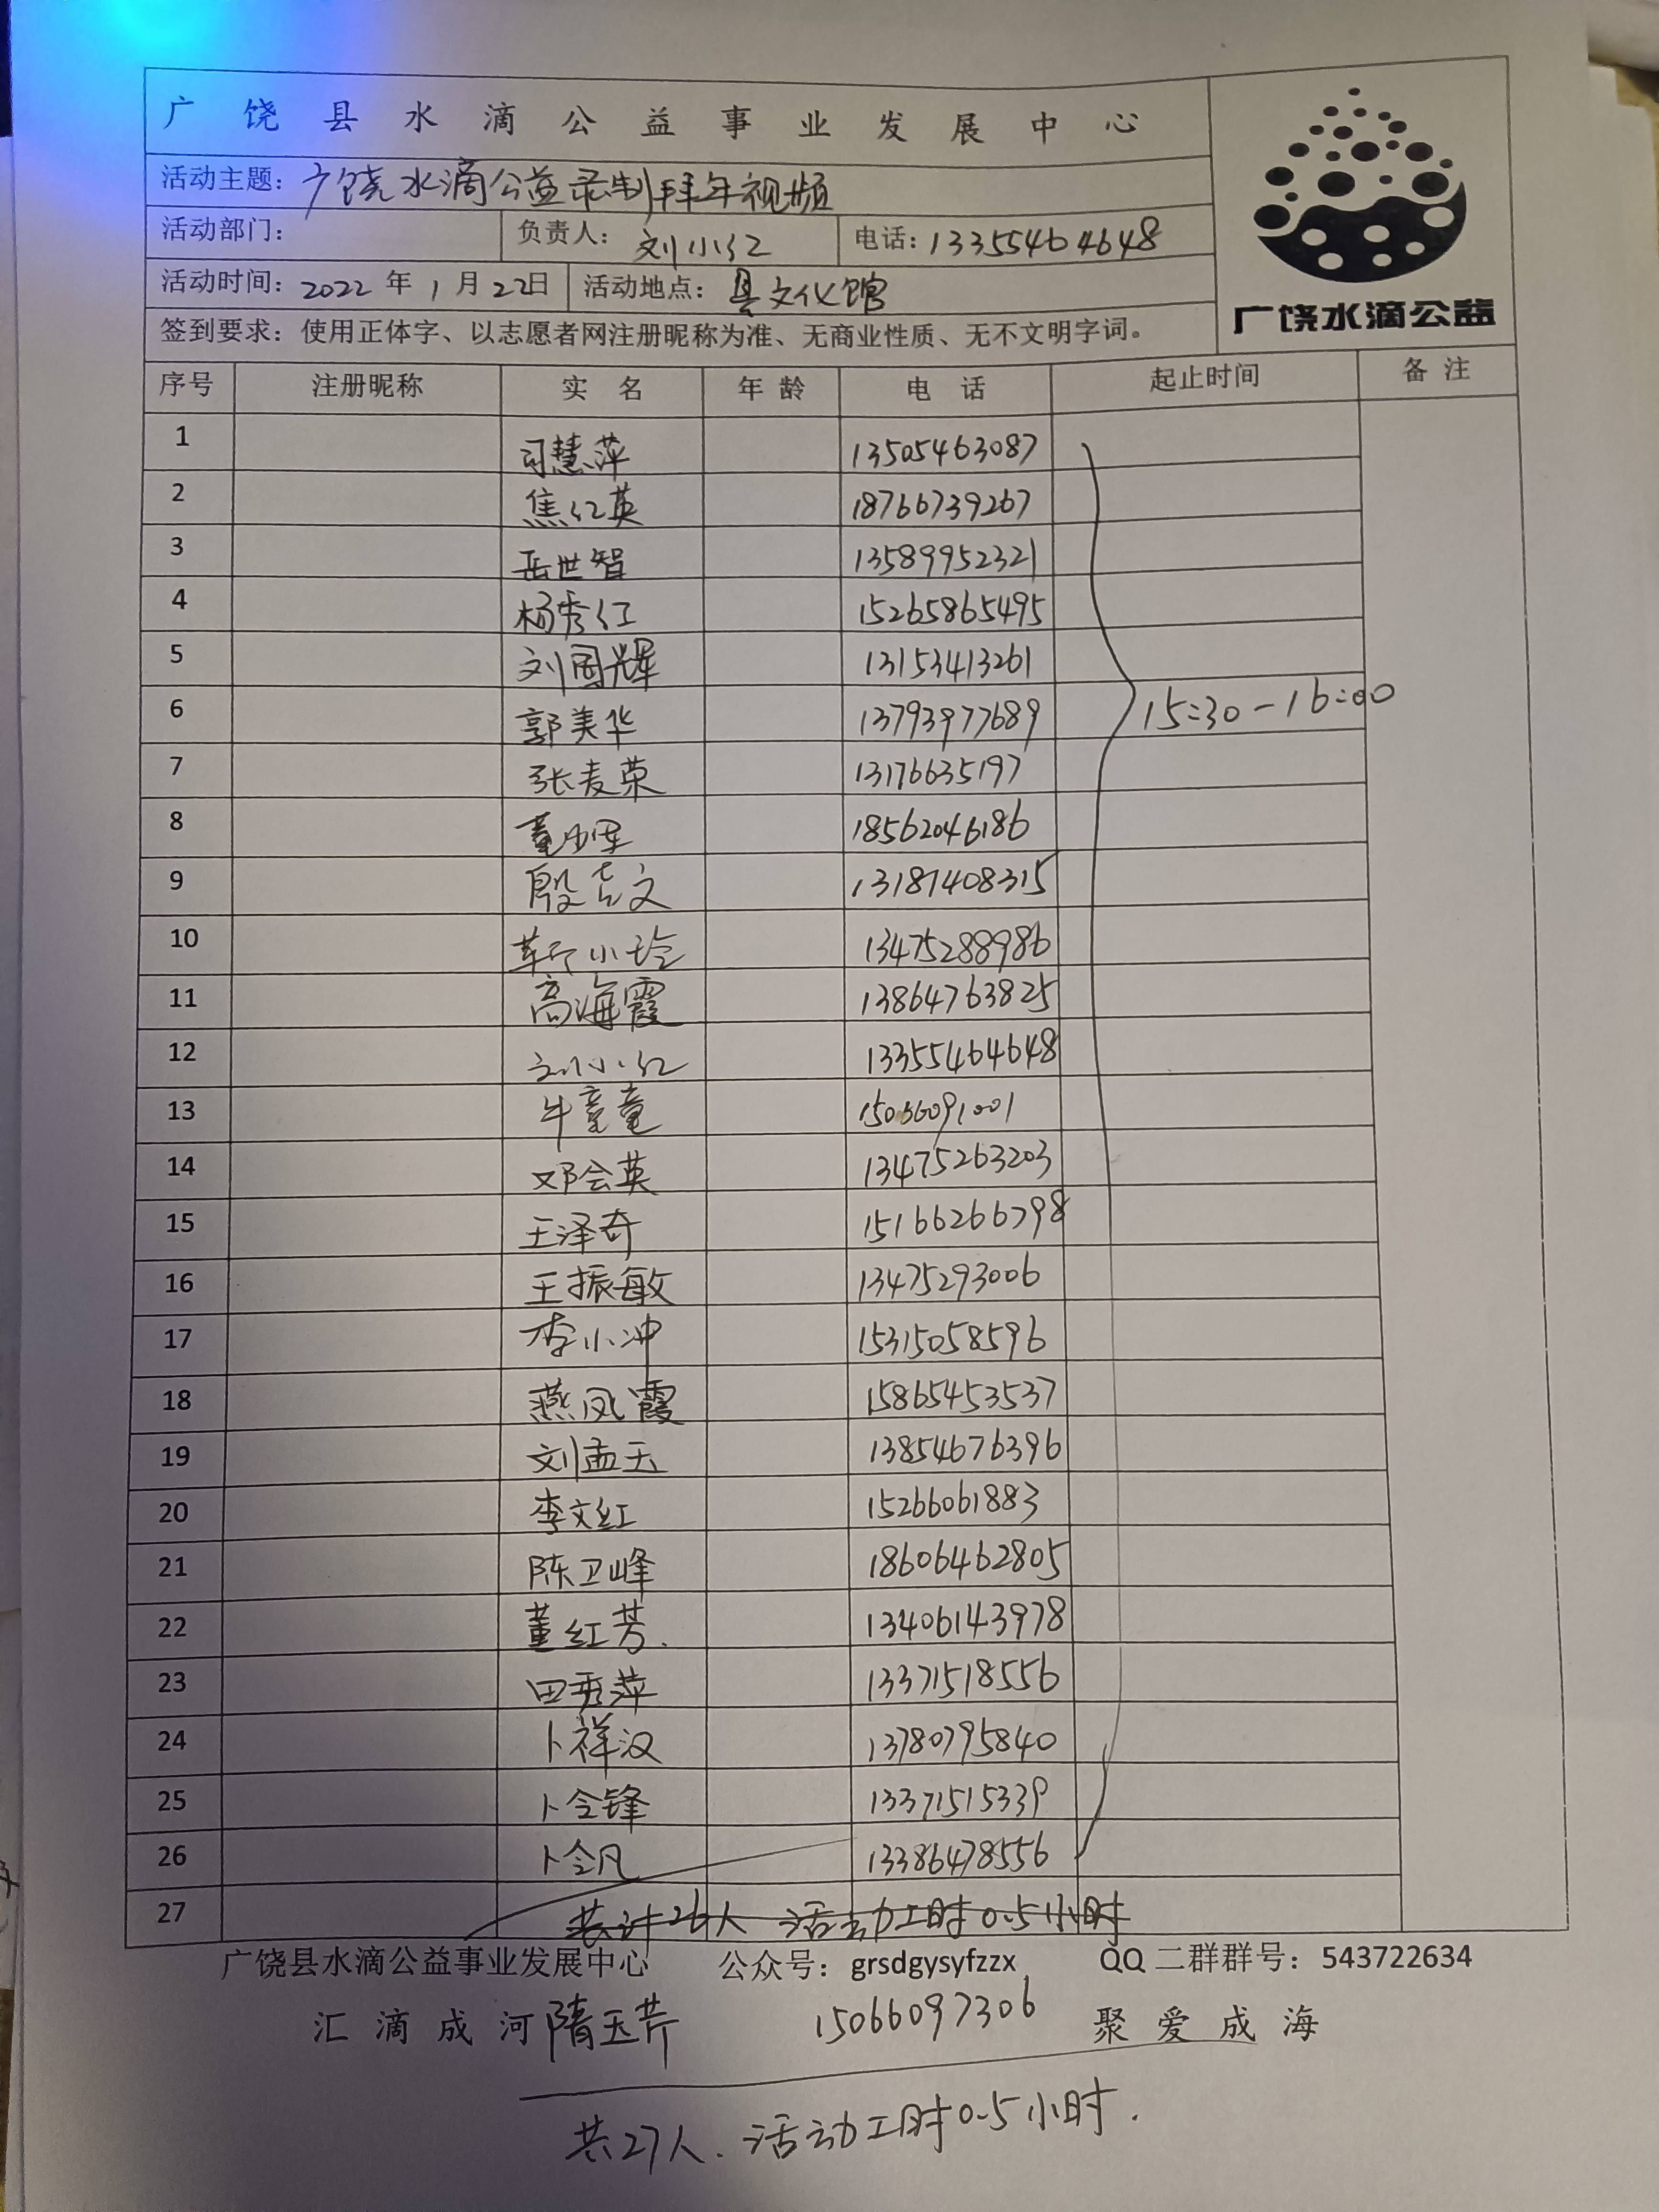 广饶县水滴公益事业发展中心
活动主题：广饶水滴公益录制拜年视频
广饶水滴公益
活动部门： 负责人：刘小红 电话：13355464648
活动时间：2022年1月22日 活动地点：县文化馆
签到要求：使用正体字、以志愿者网注册昵称为准、无商业性质、无不文明字词。
序号 注册昵称 实名 年龄 电话 起止时间 备注
1 司慧萍 13505463087
2 焦红英 18766739267
3 岳世智 13589952321
4 杨秀红 15265865495
5 刘国辉 13153413261
6 郭美华 13793977689 15:30-16:00
7 张麦荣 13176635197
8 18562046186
9 殷志文 13181408315
10 靳小玲 13475288986
11 高海霞 13864763825
12 刘小红 13355464648
13 牛童童 15066091001
14 邓会英 13475263203
15 王泽奇 15166266798
16 王振敏 13475293006
17 李小冲 15315058596
18 燕凤霞 15865453537
19 刘孟玉 13854676396
20 李文红 15266061883
21 陈卫峰 18606462805
22 董红芳. 13406143978
23 田秀萍 13371518556
24 卜祥汉 13780795840
25 卜令锋 13371515339
26 卜令凡 13386478556
27 共计26人 活动工时0.5小时
广饶县水滴公益事业发展中心 公众号：grsdgysyfzzx QQ二群群号：543722634
汇滴成河 隋玉芹 15066097306 聚爱成海
共27人.活动工时0.5小时.